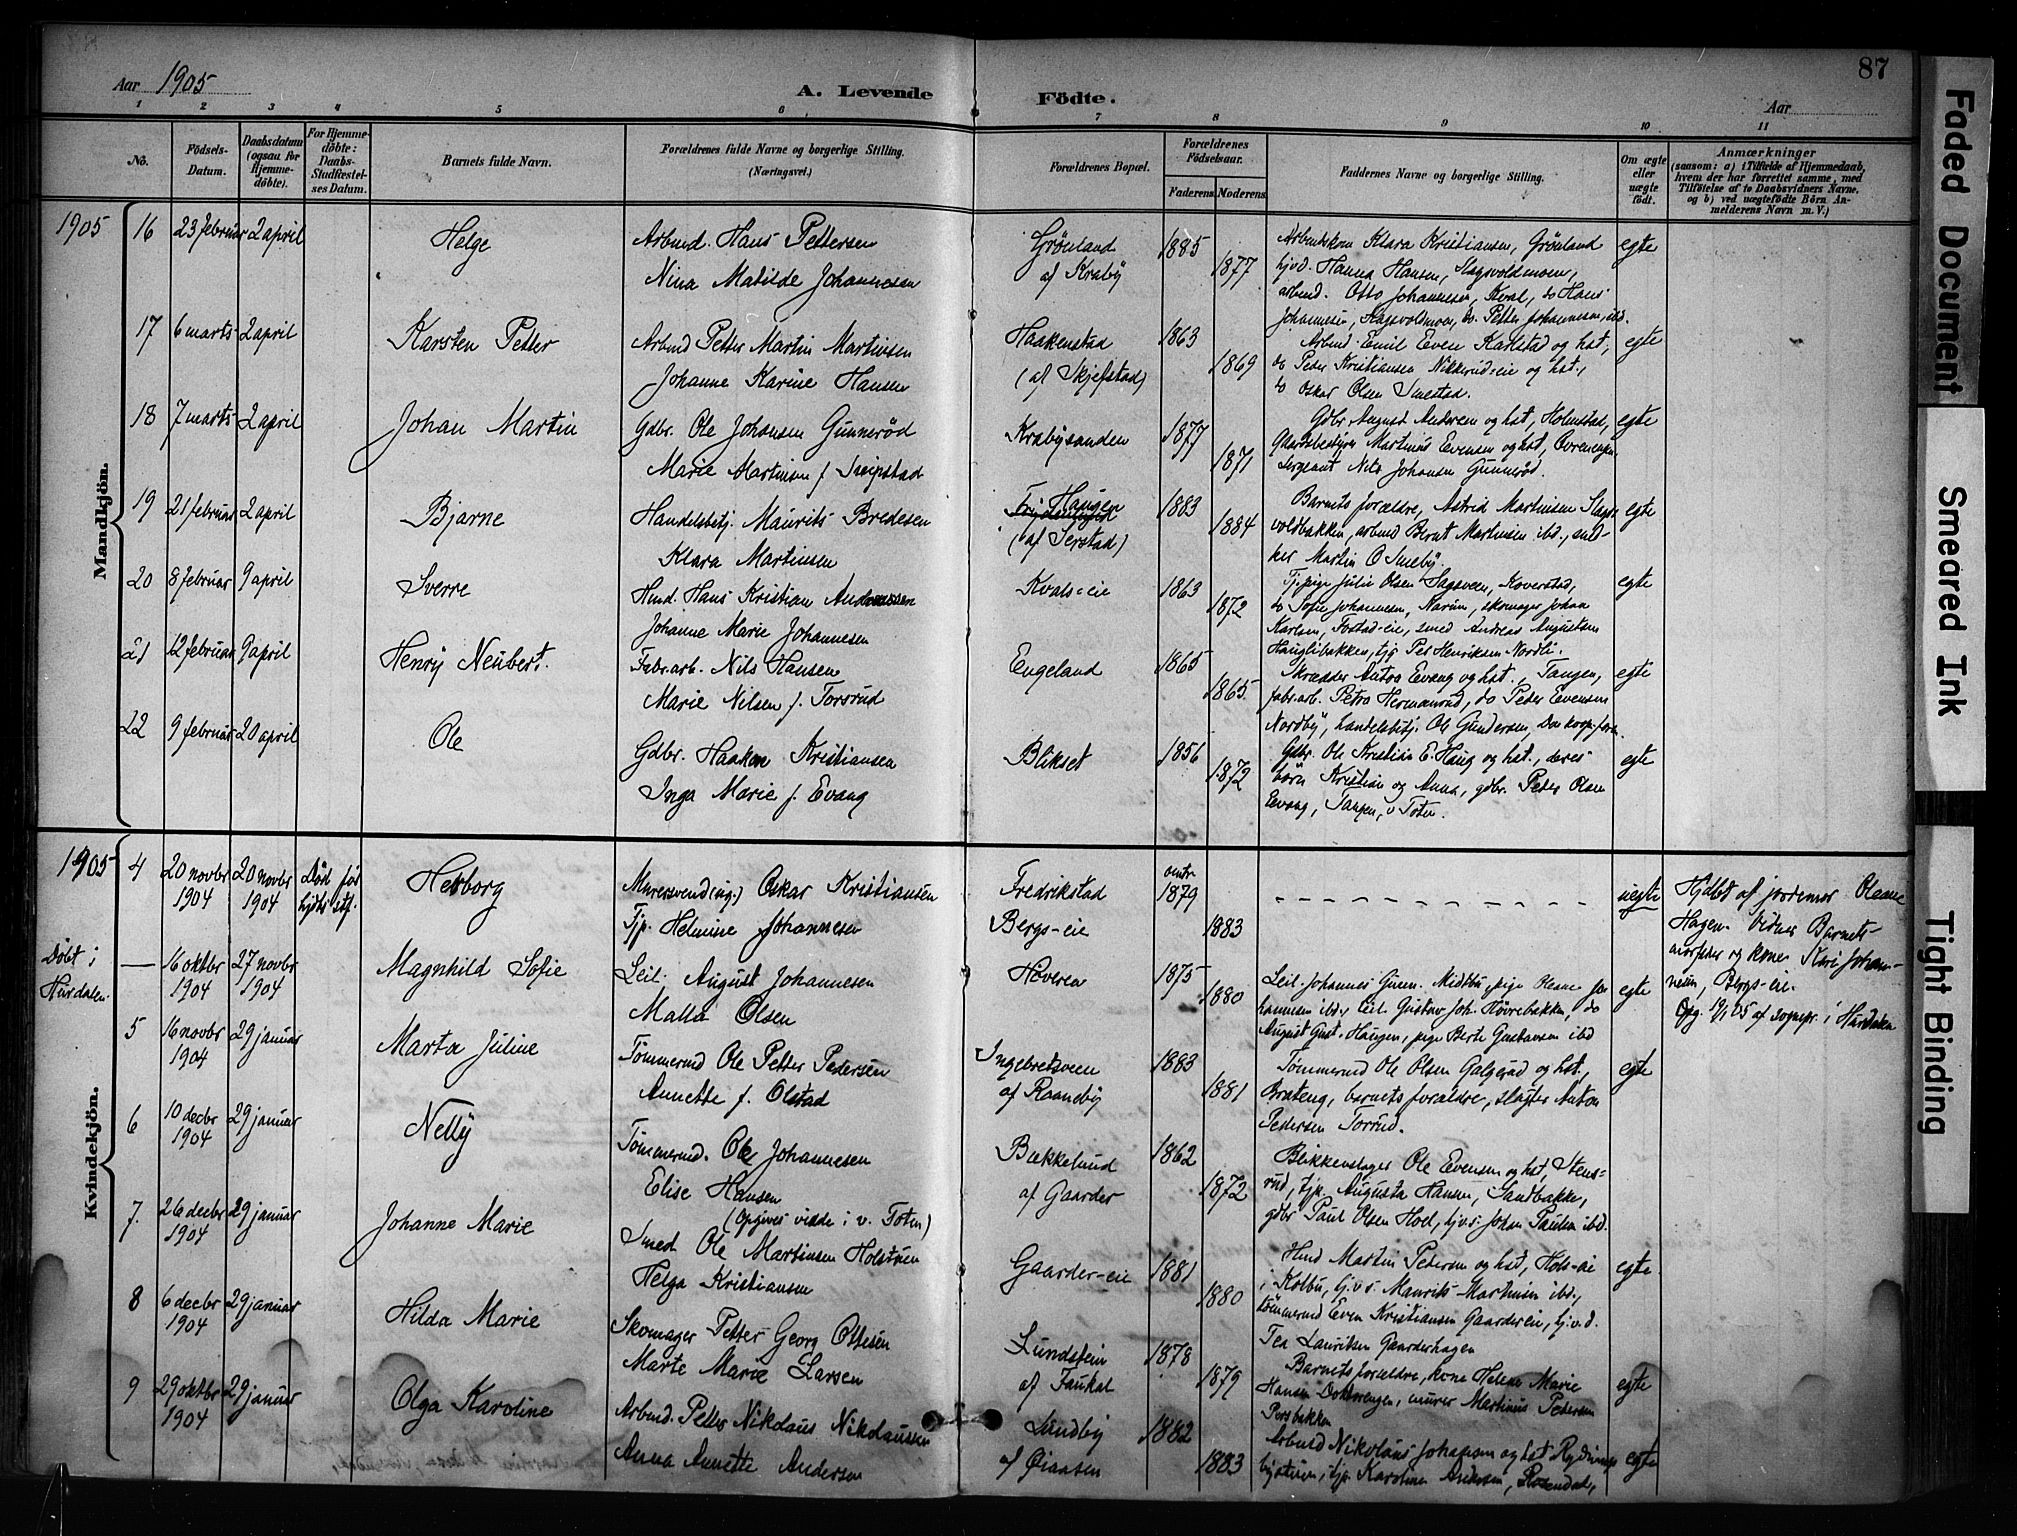 87
Aar 1905
A. Levende Födte.
Aar
1 2 3 4 5 6 7 8 9 10 11
No.
Födsels-Datum.
Daabsdatum (ogsaa for Hjemme-döbte).
For Hjemme-döbte: Daabs-Stadfæstelses Datum.
Barnets fulde Navn.
Forældrenes fulde Navne og borgerlige Stilling.
(Næringsvei.)
Forældrenes Bopæl.
Forældrenes Födselsaar.
Faderens. Moderens.
Faddernes Navne og borgerlige Stilling.
Om ægte eller uægte födt.
Anmærkninger
(saasom: a) i Tilfælde af Hjemmedaab, hvem der har forrettet samme, med Tilföielse af to Daabsvidners Navne, og b) ved uægtefödte Börn Anmelderens Navn m. V.)
Mandkjön.
1905 16 23 februar 2 april Helge
Arbmd. Hans Pettersen
Nina Matilde Johannesen
Grønland
af Kraby
1885 1877
Arbeidskone Klara Kristiansen, Grønland
hjvd. Hanna Hansen, Slagsvoldmoen,
arbmd. Otto Johannesen, Kval, do Hans
Johannesen, Slagsvoldmoen, do. Petter Johannesen, ibd.
egte
17 6 marts 2 april Karsten Petter
Arbmd Petter Martin Martinsen
Johanne Karine Hansen
Haakenstad
(af Skjefstad)
1863 1869
Arbmd Emil Even Karlstad og hst,
do Peder Kristiansen Nikkerud-eie og hst,
do Oskar Olsen Smestad.
egte
18 7 marts 2 april Johan Martin
Gdbr. Ole Johansen Gunnerød
Marie Martinsen f.
Krabysanden
1877 1871
Gdbr. August Andersen og hst, Holmstad,
Martinus Evensen og hst,
sergeant Nils Johansen Gunnerød.
egte
19 21 februar 2 april Bjarne
Handelsbetj. Maurits Bredesen
Klara Martinsen
Haugen
(af Serstad)
1883 1884
Barnets forældre, Astrid Martinsen Slags-
voldbakken, arbmd Bernt Martinsen ibd., snek-
ker Martin O Smeby.
egte
20 8 februar 9 april Sverre
Hmd. Hans Kristian Andersen
Johanne Marie Johannesen
Kvals-eie
1863 1872
Tj. pige Julie Olsen Sagsveen, Koverstad,
do Sofie Johannesen, Narum, skomager Johan
Karlsen, Fostad-eie, smed Andreas Augustsen
Hauglibakken, tjg Per Henriksen Nordli.
egte
21 12 februar 9 april Henry Neubert.
Fabr.arb. Nils Hansen
Marie Nilsen f. Torsrud
Engeland
1865 1865
Skrædder Anton Evang og hst., Tangen,
fabr.arb. Petra Hermanrud, do Peder Evensen
Nordby, handelsbetj. Ole Gundersen,
egte
22 9 februar 20 april Ole
Gdbr. Haakon Kristiansen
Inga Marie f. Evang
Blikset
1856 1872
Gdbr. Ole Kristian E. Haug og hst., deres
børn Kristian og Anna, gdbr. Peder Olsen
Evang, Tangen, v Toten.
egte
Kvindekjön.
1905 4 20 novbr 1904 20 novbr 1904 Død før hjdb stf. Herborg
Muresvend (ug.) Oskar Kristiansen
Tjp. Helmine Johannesen
Fredrikstad
Bergs-eie
omtr 1879 1883
uegte
Hjdbt af jordemor Oleane
Hagen. Vidner Barnets
morfader og kone Kari Johan-
nesen, Bergs-eie.
Døbt i Hurdalen — 16 oktbr 1904 27 novbr 1904 Magnhild Sofie
Leil. August Johannesen
Malla Olsen
Høveren
1875 1880
Leil. Johannes Midtbu, pige Oleane Jo-
hannesen ibd., Leil. Gustav Joh. Høvrebakken, do
August Gust. Haugen, pige Berte Gustavsen ibd
egte
Opg. 19/1 05 af sognepr. i Hurdalen
5 16 novbr 1904 29 januar Marta Juline
Tømmermd Ole Petter Pedersen
Annette f. Olstad
Ingebretsveen
af Raaneby
1883 1881
Tømmermd Ole Olsen Galgerud og hst,
Brateng, barnets forældre, slagter Anton
Pedersen Torrud.
egte
6 10 decbr 1904 29 januar Nelly
Tømmermd. Ole Johannesen
Elise Hansen
(Opgives viede i v. Toten)
Bækkelund
af Gaarder
1862 1872
Blikkenslager Ole Evensen og hst, Stens-
rud, tjp. Augusta Hansen, Sandbakke,
gdbr Paul Olsen Hoel, hjvs. Johan Paulsen ibd.
7. 26 decbr 1904 29 januar Johanne Marie
Smed Ole Martinsen Holstuen
Helga Kristiansen
Gaarder-eie
1881 1880
Hmd Martin Pedersen og hst, Hols-eie
i Kolbu, hjvs. Maurits Martinsen ibd.,
tømmermd Even Kristiansen Gaardereie, hjvd.
Tea Lauritsen Gaarderhagen
egte.
8 6 decbr 1904 29 januar Hilda Marie
Skomager Petter Georg Ottesen
Marte Marie Larsen
Lundstein
af Faukal
1878 1879
Barnets forældre, kone Helene Marie
Hansen Dokkengen, murer Martinus Pedersen
Persbakken
egte
9 29 oktbr 1904 29 januar Olga Karoline
Arbmd. Petter Nikolaus Nikolaussen
Anna Annette Andersen
Sandby
af Øiaasen
1882 1883
Arbmd Nikolaus Johansen og hst
tjp Karoline Andersen, Rosendal,
egte
Faded Document
Smeared Ink
Tight Binding